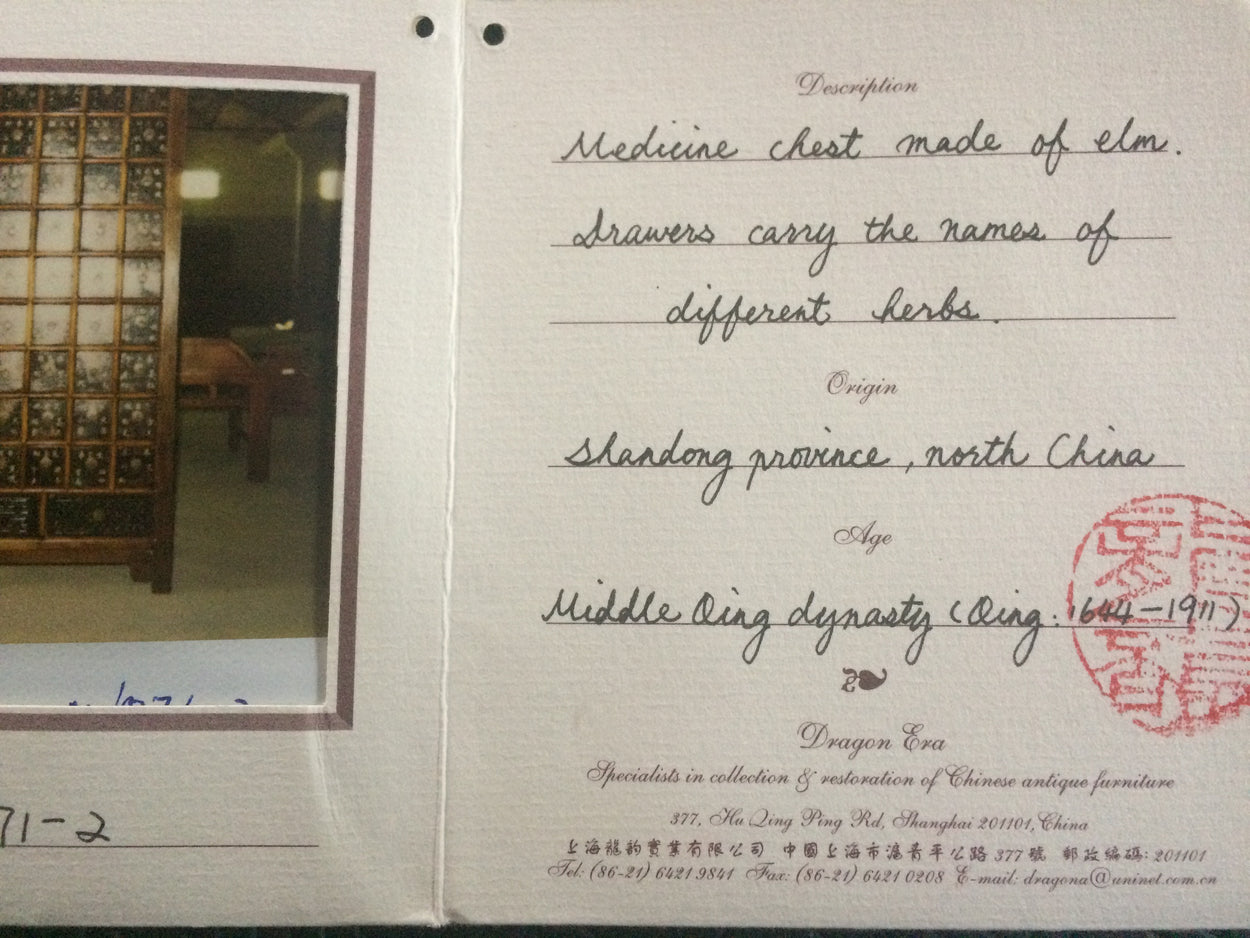 71-2
Description
Medicine chest made of elm.
Drawers carry the names of
different herbs.
Origin
Shandong province, north China
Age
Middle Qing dynasty (Qing: 1644-1911)
Dragon Era
Specialists in collection & restoration of Chinese antique furniture
377, Hu Qing Ping Rd, Shanghai 201101, China
上海龍韵實業有限公司 中國上海市滬青平公路377號 郵政编碼: 201101
Tel: (86-21) 6421 9841 Fax: (86-21) 6421 0208 E-mail: dragona@uninet.com.cn